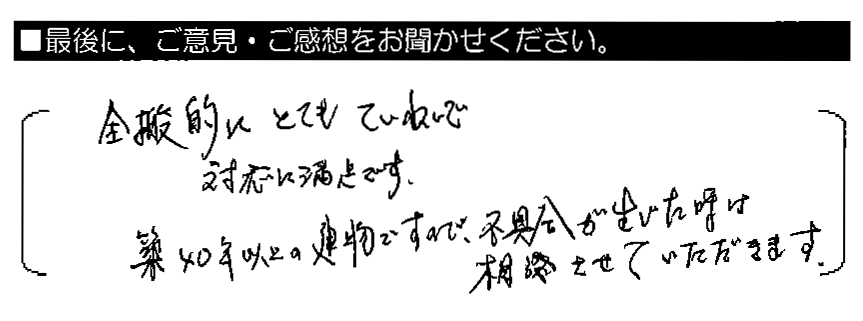 ■最後に、ご意見・ご感想をお聞かせください。
全搬的に とても ていねいで
対応に満点です。
築40年以上の建物ですので、不具合が生じた時は
相談させていただきます。